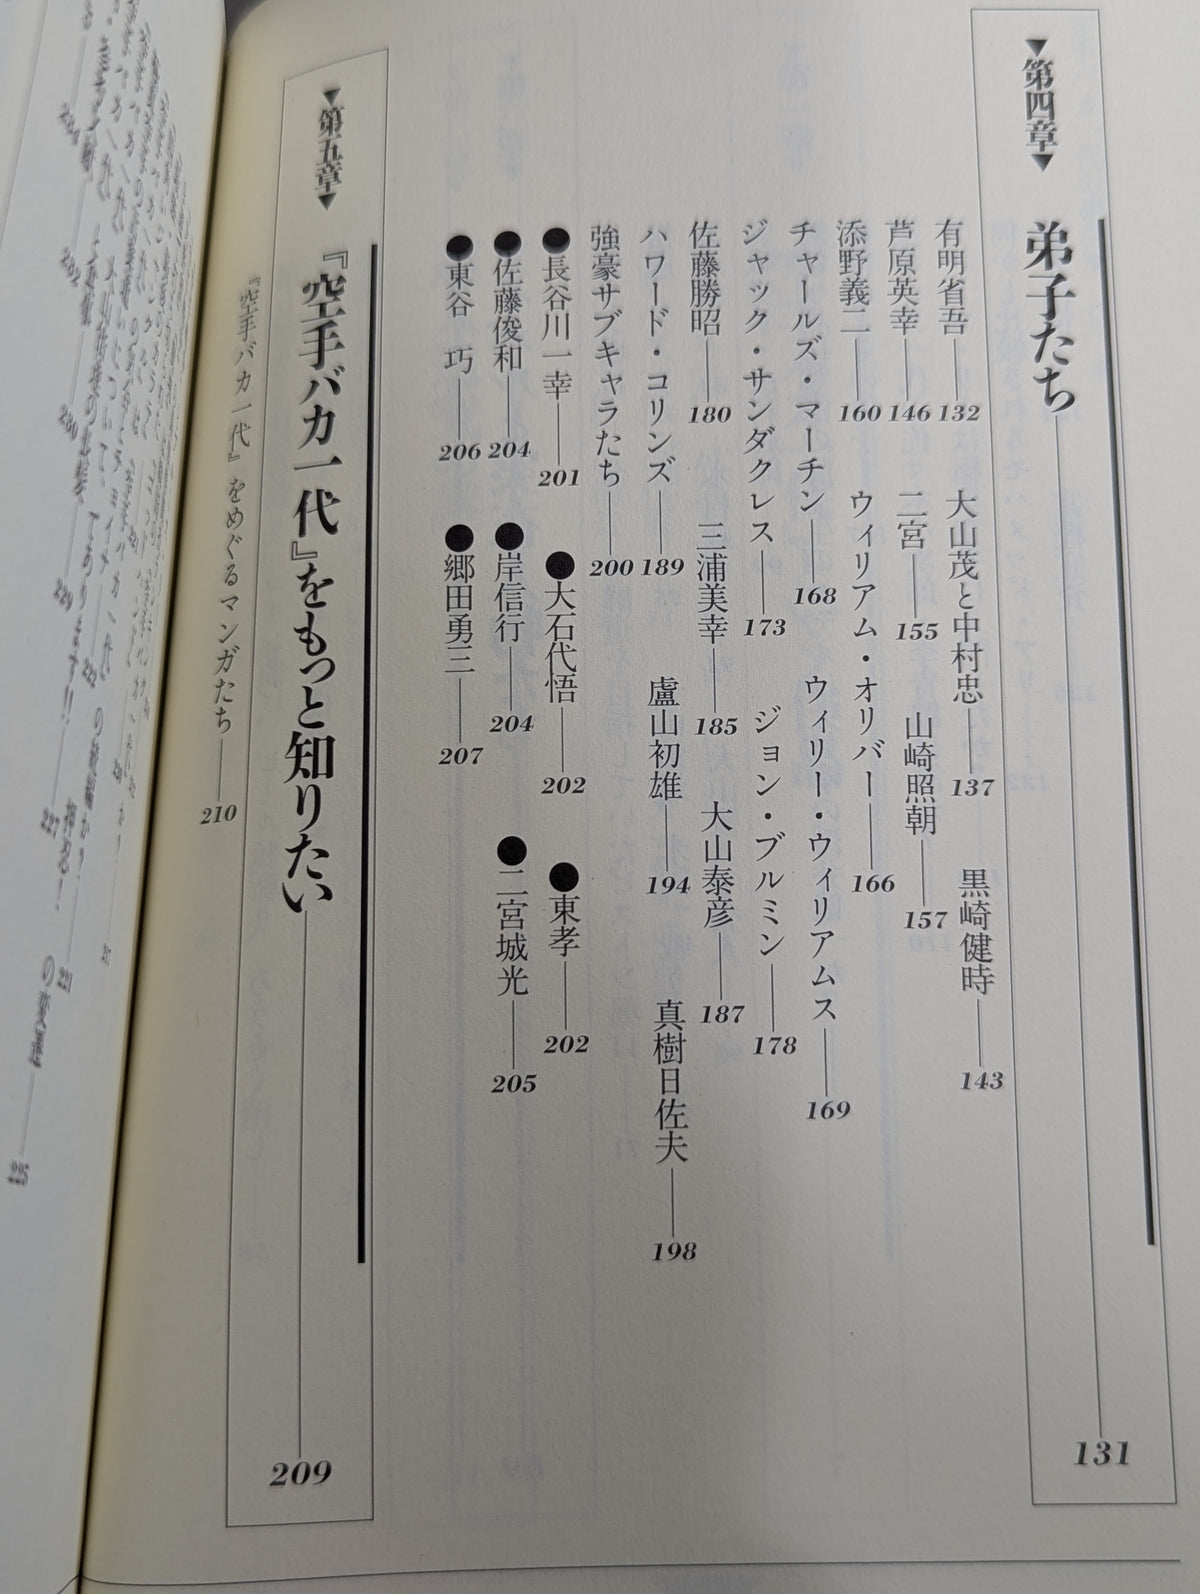 ▼第四章▼
弟子たち 131
有明省吾 132 大山茂と中村忠 137 黒崎健時 143
芦原英幸 146 二宮 155 山崎照朝 157
添野義二 160 ウィリアム・オリバー 166
チャールズ・マーチン 168 ウィリー・ウィリアムス 169
ジャック・サンダクレス 173 ジョン・ブルミン 178
佐藤勝昭 180 三浦美幸 185 大山泰彦 187
ハワード・コリンズ 189 盧山初雄 194 真樹日佐夫 198
強豪サブキャラたち 200
●長谷川一幸 201 ●大石代悟 202 ●東孝 202
●佐藤俊和 204 ●岸信行 204 ●二宮城光 205
●東谷 巧 206 ●郷田勇三 207
▼第五章▼
『空手バカ一代』をもっと知りたい 209
『空手バカ一代』をめぐるマンガたち 210